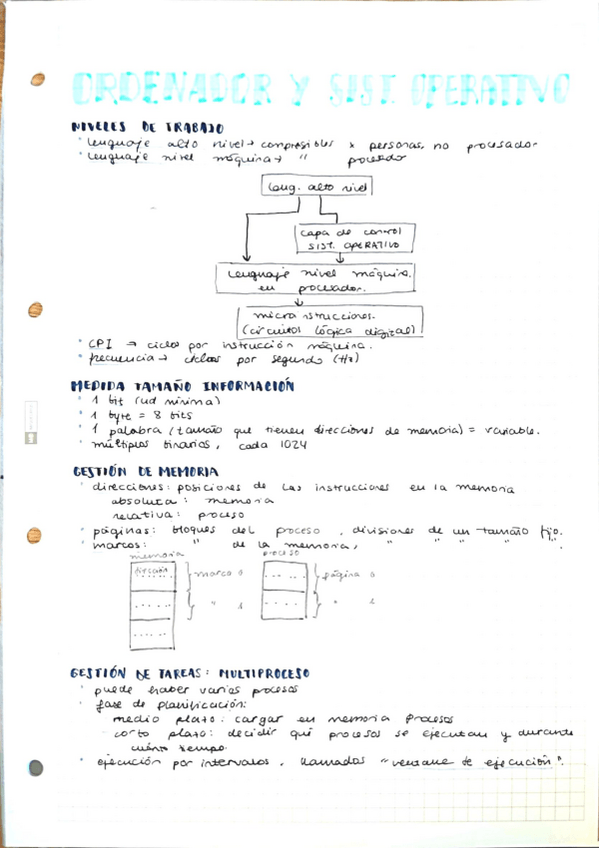 ORDENADOR Y SIST. OPERATIVO
NIVELES DE TRABAJO
· lenguaje alto nivel → compresibles x personas, no procesador
· lenguaje nivel máquina → " procesador
leng. alto nivel
capa de control
SIST. OPERATIVO
lenguaje nivel máquina.
en procesador.
micro instrucciones.
(circuitos lógica digital)
· CPI → ciclos por instrucción máquina.
· frecuencia → ciclos por segundo (Hz)
MEDIDA TAMAÑO INFORMACIÓN
· 1 bit (ud mínima)
· 1 byte = 8 bits
· 1 palabra (tamaño que tienen direcciones de memoria) = variable.
· múltiplos binarios, cada 1024
GESTIÓN DE MEMORIA
· direcciones: posiciones de las instrucciones en la memoria
absoluta: memoria
relativa: proceso
· páginas: bloques del proceso, divisiones de un tamaño fijo.
· marcos: " de la memoria, " " " " ".
memoria proceso
dirección marco 0 página 0
" 1 "
GESTIÓN DE TAREAS: MULTIPROCESO
· puede haber varios procesos
· fase de planificación:
medio plazo: cargar en memoria procesos
corto plazo: decidir qué procesos se ejecutan y durante
cuánto tiempo.
· ejecución por intervalos, llamados "ventana de ejecución".